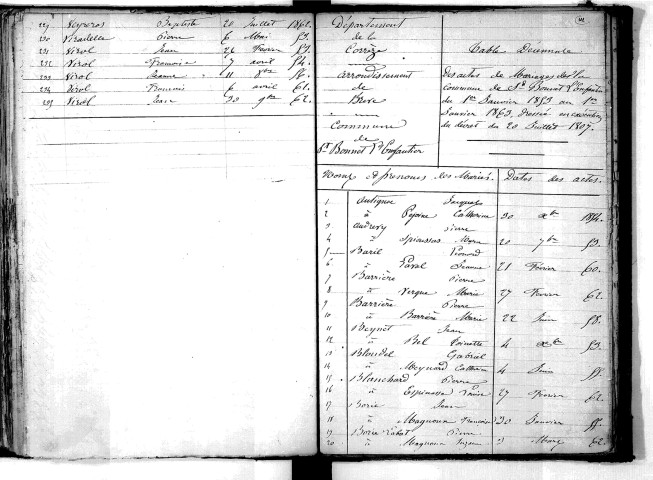 229 Veyres Baptiste 20 Juillet 1862.
230 Viradelle Pierre 6 Mai 53.
231 Virol Jean 26 Fevrier 53.
232 Virol Francoise 7 avril 54.
233 Virol Jeanne 11 8bre
234 Virol Francois 6 avril 61.
235 Virol Jean 30 9bre 62.
Département
de la
Corrèze
Arrondissement
de
Brive
Commune
de
St Bonnet l'Enfantier
Table Décennale
Des actes de Mariages de la
commune de St Bonnet l'Enfantier
du 1er Janvier 1853 au 1er
Janvier 1863, Dressée en exécution
du décret du 20 Juillet 1807.
Noms et prénoms des Mariés. Dates des actes.
1 Jacques
2 à Catherine 30 Xbre 1854.
3 Audrevy Pierre
4 à 20 7bre 53.
5 Baril Léonard
6 à Jeanne 21 Fevrier 60.
7 Barrière Pierre
8 à Vergne Marie 27 Fevrier 62.
9 Barrière Pierre
10 à Barrière Marie 22 Juin 58.
11 Beynet Jean
12 à Bel Toinette 4 Xbre 53.
13 Bloudel Gabriel
14 à Meynard Catherine 4 Juin 55.
15 Blanchard Pierre
16 à Espinasse 27 Fevrier 62.
17 Borie Jean
18 à Magnoux Francoise 30 Janvier 55.
19 Borie Pierre
20 à Magnoux 3 Mars 62.